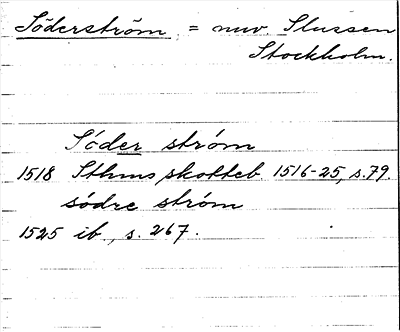 Söderström = nuv. Slussen
Stockholm.
Söder ström
1518 Sthms skotteb. 1516-25, s. 79.
södre ström
1525 ib., s. 267.